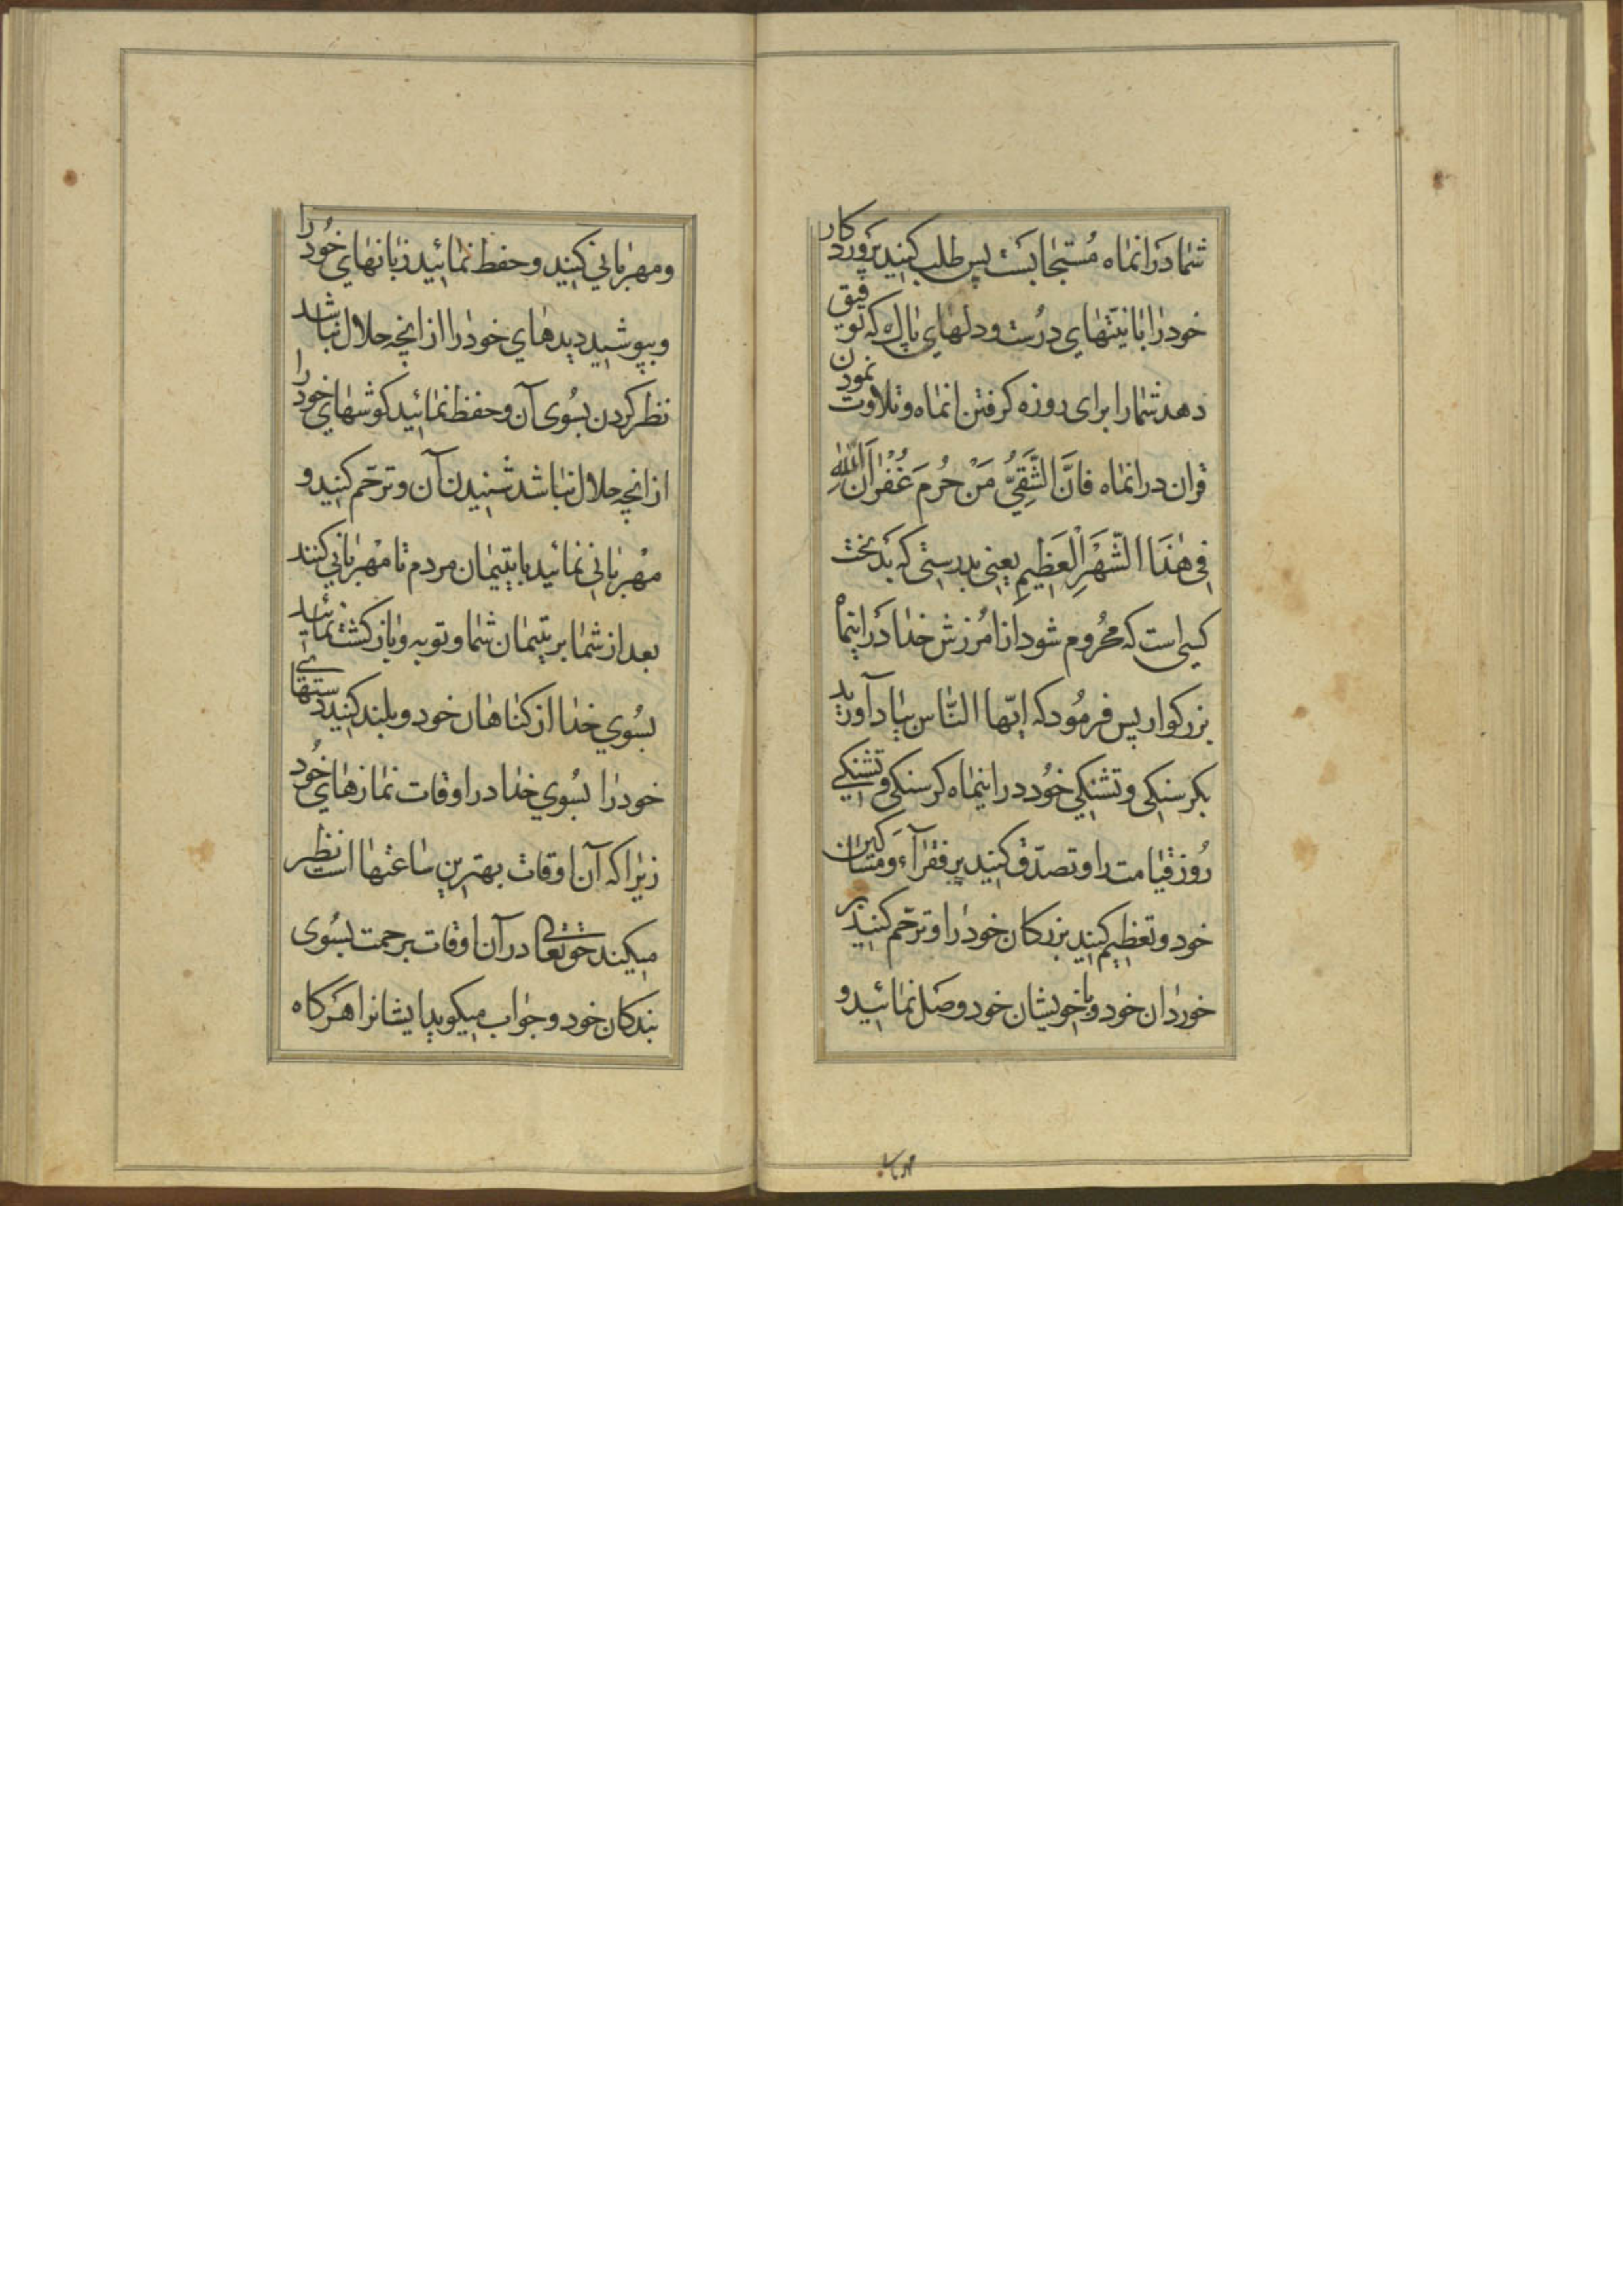 شما در انماه مُستجابست پس طلب کنید پروردکار
خود را با نیّتهای درست و دلهای پاک که توفیق
دهد شما را برای روزه کرفتن انماه و تلاوت نمودن
قران در انماه فَانَّ الشَّقِيُّ مَنْ حُرِمَ غُفْرانَ اللهِ
فِي هٰذَا الشَّهْرِ الْعَظِيمِ یعنی بدرستی که بدبخت
کسی است که محُروم شود از امُرزش خدا در اینماه
بزرکوار پس فرمُود که ایّها النّاس بیاد آورید
بکرسنکی و تشنکی خوُد در اینماه کرسنکی و تشنکی
رُوز قیامت را و تصدّق کنید بر فقرآء و مساکین
خود و تعظیم کنید بزرکان خود را و ترحّم کنید بر
خوردان خود و با خویشان خود وصل نمائید و
ومهربانی
ومهربانی کنید و حفظ نمائید زبانهای خوُد را
و بپوشید دیدهای خود را از انچه حلال نباشد
نظر کردن بسُوی آن و حفظ نمائید کوشهای خود را
از انچه حلال نباشد شنیدن آن و ترحّم کنید و
مهربانی نمائید با یتیمان مردم تا مهربانی کنند
بعد از شما بر یتیمان شما و توبه و بازکشت نمائید
بسُوی خدا از کناهان خود و بلند کنید دستهای
خود را بسُوی خدا در اوقات نمازهای خوُد
زیرا که آن اوقات بهترین ساعتها است نظر
میکند حق تعالی در آن اوقات برحمت بسُوی
بندکان خود و جواب میکوید ایشانرا هرکاه